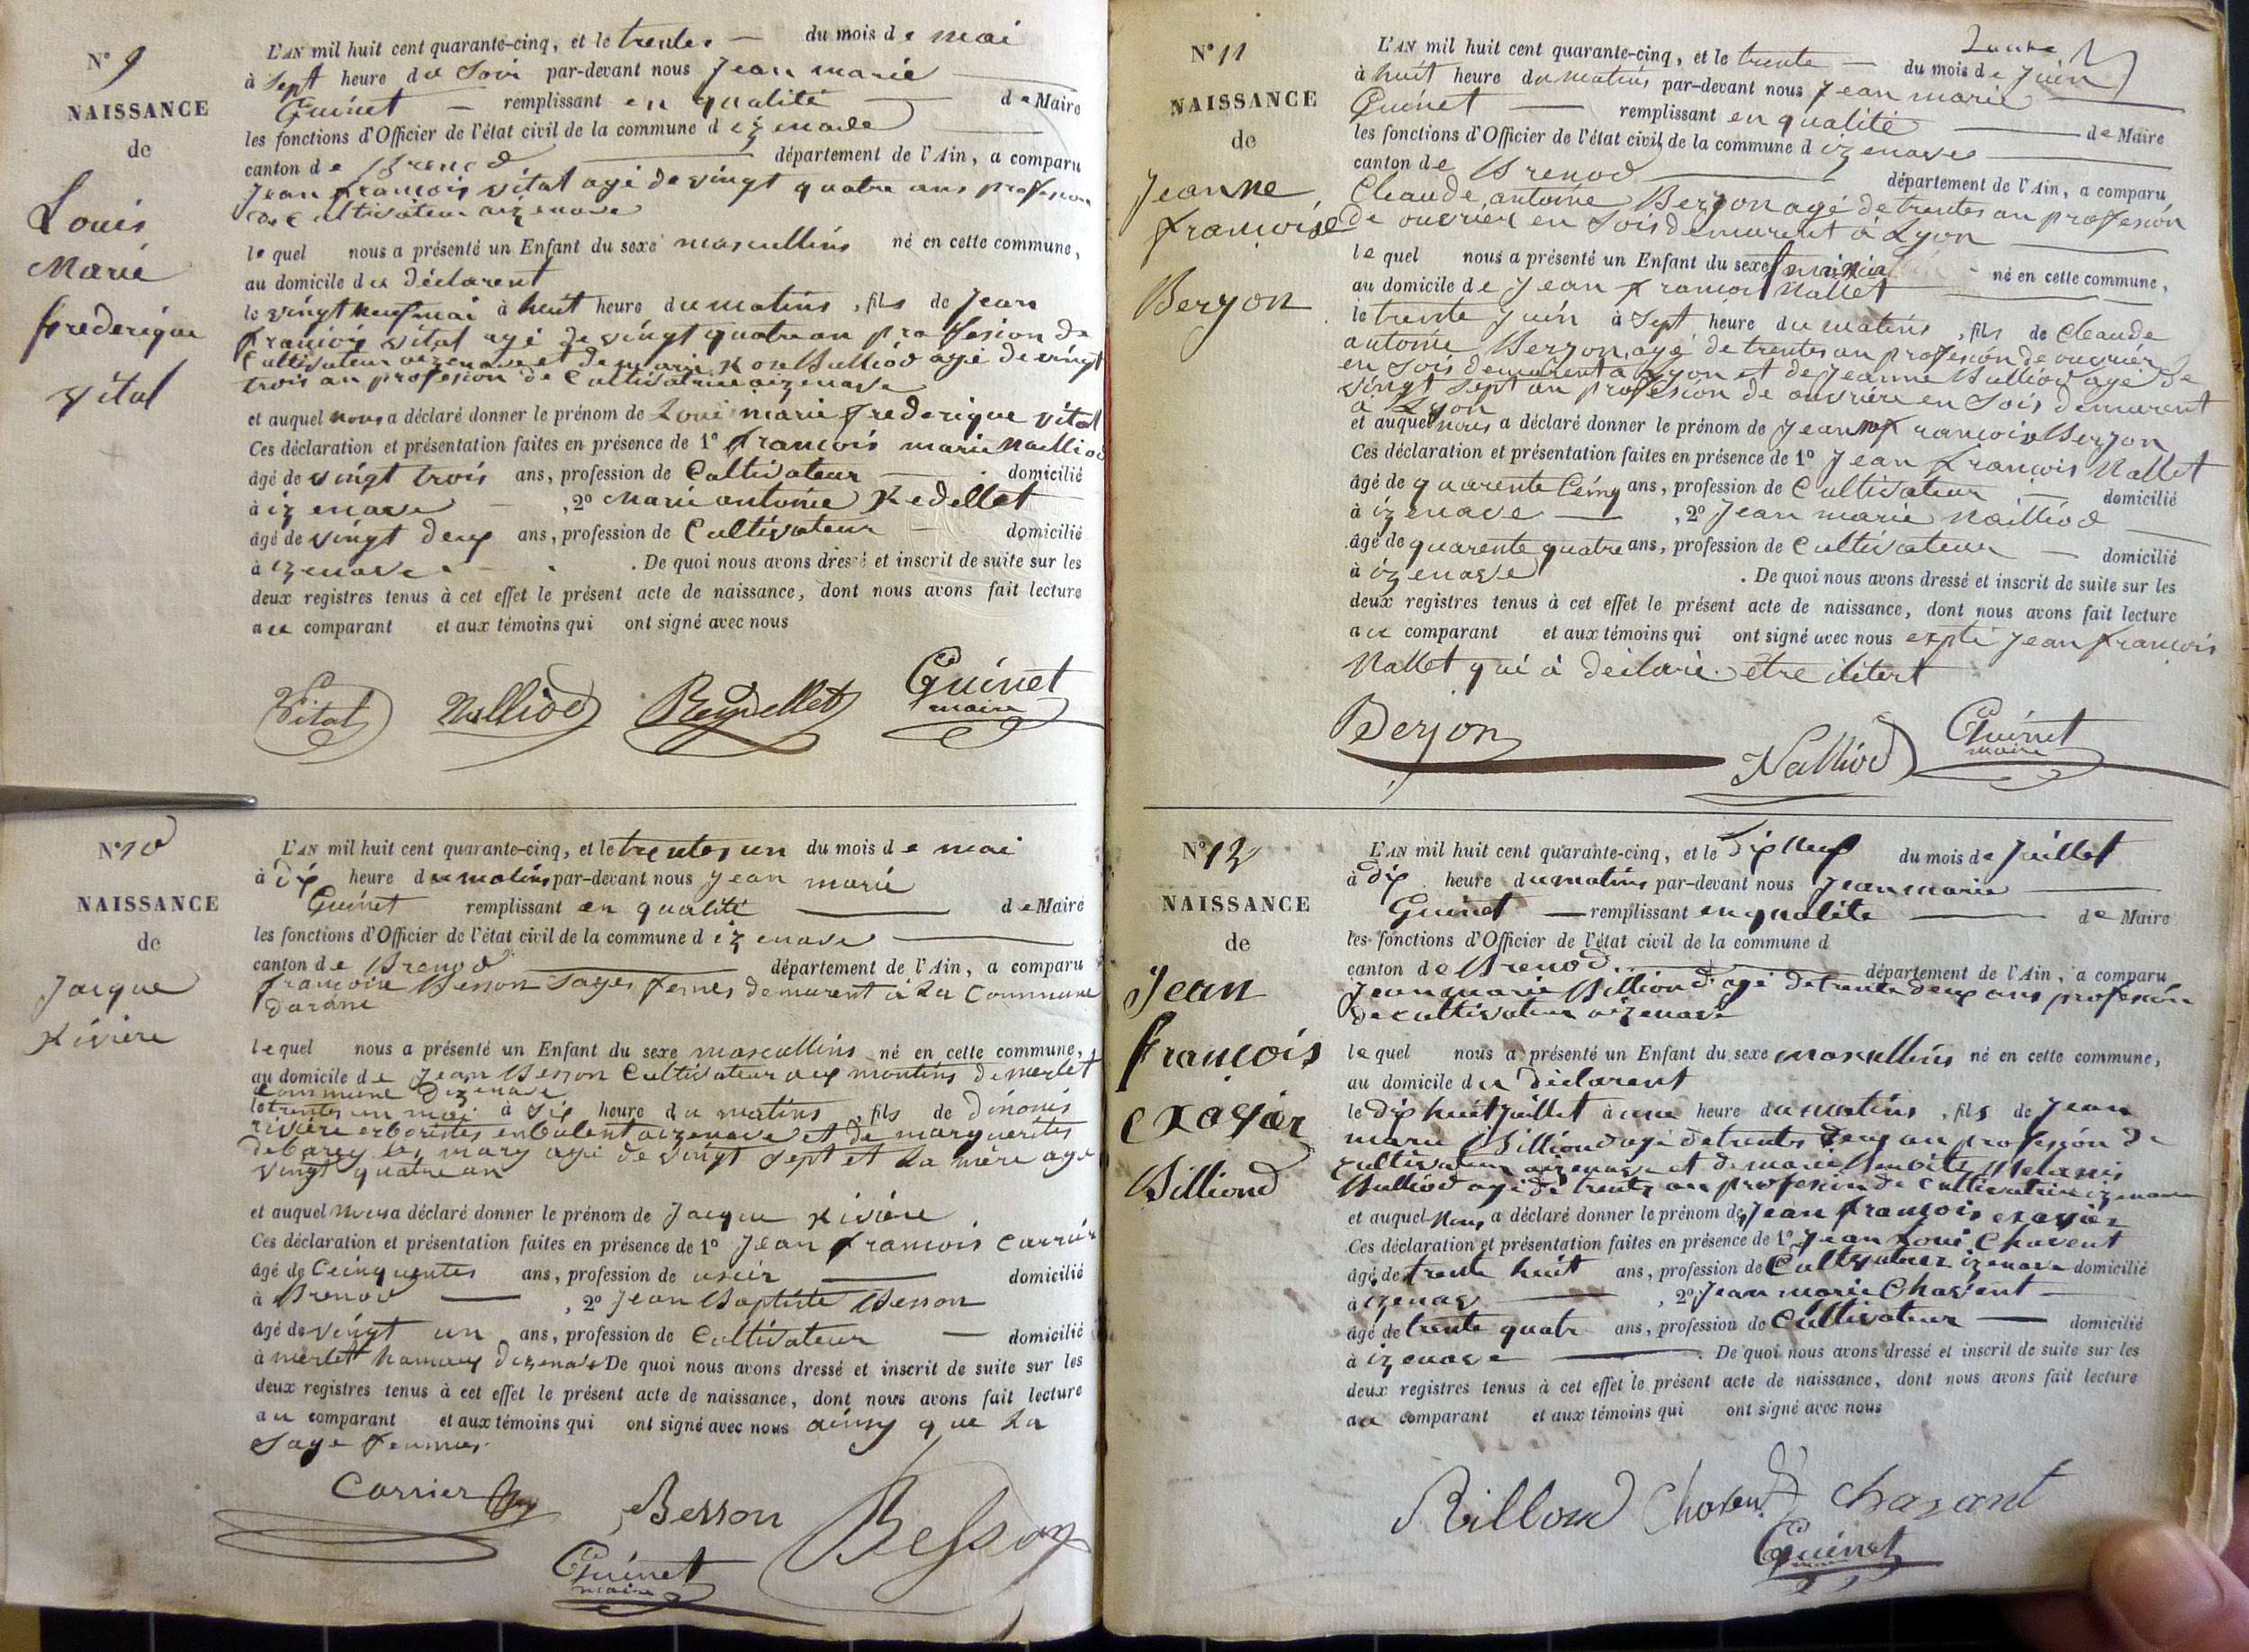 N° 9
NAISSANCE
de
Louis
Marie
frederique
vital
L'AN mil huit cent quarante-cinq, et le trentes — du mois de mai
à sept heure du Soir par-devant nous Jean marie
Guinet — remplissant en qualité — de Maire
les fonctions d'Officier de l'état civil de la commune d izenave
canton de Brenod département de l'Ain, a comparu
Jean françois vital agé de vingt quatre ans profesion
de Cultivateur aizenave
lequel nous a présenté un Enfant du sexe mascullins né en cette commune,
au domicile du déclarent
le vingt neuf mai à huit heure du matins, fils de Jean
françois vital agé de vingt quatre an profesion de
Cultivateur aizenave et de marie Bulliod agé de vingt
trois an profesion de Cultivatrice aizenave
et auquel nous a déclaré donner le prénom de Loui marie frederique vital
Ces déclaration et présentation faites en présence de 1° françois marie Nalliod
âgé de vingt trois ans, profession de Cultivateur — domicilié
à izenave — , 2° Marie antoine Redellet
âgé de vingt deux ans, profession de Cultivateur — domicilié
à izenave . De quoi nous avons dressé et inscrit de suite sur les
deux registres tenus à cet effet le présent acte de naissance, dont nous avons fait lecture
au comparant et aux témoins qui ont signé avec nous
Vital Nalliod Reydellet Guinet
maire
N° 10
NAISSANCE
de
Jacque
Rivière
L'AN mil huit cent quarante-cinq, et le trentes un du mois de mai
à dix heure du matins par-devant nous Jean marie
Guinet remplissant en qualité — de Maire
les fonctions d'Officier de l'état civil de la commune d izenave
canton de Brenod département de l'Ain, a comparu
françoise Besson Sages femes demurent à La Commune
darane
lequel nous a présenté un Enfant du sexe mascullins né en cette commune,
au domicile de Jean Besson Cultivateur aux montins de merlet
Commune dizenave
le trentes un mai à six heure du matins, fils de
rivière erboristes enbulent aizenave et de marguerites
agé de vingt sept et La mère agé
vingt quatre an
et auquel nous a déclaré donner le prénom de Jacque Rivière
Ces déclaration et présentation faites en présence de 1° Jean françois Carrier
âgé de Ceinquentes ans, profession de — domicilié
à Brenod — , 2° Jean Baptiste Besson
âgé de vingt un ans, profession de Cultivateur — domicilié
à merlet hamaux dizenave De quoi nous avons dressé et inscrit de suite sur les
deux registres tenus à cet effet le présent acte de naissance, dont nous avons fait lecture
au comparant et aux témoins qui ont signé avec nous ainsy que La
Sage femmes
Carrier Besson Besson
Guinet
maire
N° 11
NAISSANCE
de
Jeanne
françoise
Berjon
L'AN mil huit cent quarante-cinq, et le trente — du mois de Juin
à huit heure du matins par-devant nous Jean marie
Guinet — remplissant en qualité — de Maire
les fonctions d'Officier de l'état civil de la commune d izenaves
canton de Brenod département de l'Ain, a comparu
Claude antoine Berjon agé de trentes an profesión
de ouvrier en Sois demurent à Lyon
lequel nous a présenté un Enfant du sexe né en cette commune,
au domicile de Jean françois Nallet
le trente Juin à Sept heure du matins, fils de Claude
antoine Berjon, agé de trentes an profesion de ouvrier
en Sois demurent à Lyon et de Jeanne Bulliod agé de
vingt Sept an profesion de ouvrière en Sois demurent
à Lyon
et auquel nous a déclaré donner le prénom de Jeanne françoise Berjon
Ces déclaration et présentation faites en présence de 1° Jean françois Nallet
âgé de quarente Cinq ans, profession de Cultivateur — domicilié
à izenave — , 2° Jean marie Nailliod
âgé de quarente quatre ans, profession de Cultivateur — domicilié
à izenave . De quoi nous avons dressé et inscrit de suite sur les
deux registres tenus à cet effet le présent acte de naissance, dont nous avons fait lecture
au comparant et aux témoins qui ont signé avec nous expté Jean françois
Nallet qui à déclaré être
Berjon Nalliod Guinet
maire
N° 12
NAISSANCE
de
Jean
françois
exavier
Billiond
L'AN mil huit cent quarante-cinq, et le dix neuf du mois de Juillet
à dix heure du matins par-devant nous Jean marie
Guinet — remplissant en qualite — de Maire
les fonctions d'Officier de l'état civil de la commune d
canton de Brenod département de l'Ain, a comparu
Jean marie Billiond agé de trente deux ans profesión
de cultivateur aizenave
lequel nous a présenté un Enfant du sexe mascullins né en cette commune,
au domicile du déclarent
le dix huit Juillet à une heure du matins, fils de Jean
marie Billiond agé de trentes deux an profesión de
cultivateur aizenave et de marie
Bulliod agé de trentes an profesion de Cultivatrice izenave
et auquel nous a déclaré donner le prénom de Jean françois exavier
Ces déclaration et présentation faites en présence de 1° Jean Loui Chavent
âgé de trente huit ans, profession de Cultivateur izenave domicilié
à izenav — , 2° Jean marie Chavent —
âgé de trente quatr ans, profession de Cultivateur — domicilié
à izenave — . De quoi nous avons dressé et inscrit de suite sur les
deux registres tenus à cet effet le présent acte de naissance, dont nous avons fait lecture
au comparant et aux témoins qui ont signé avec nous
Billiond Chavent Chavant
Guinet